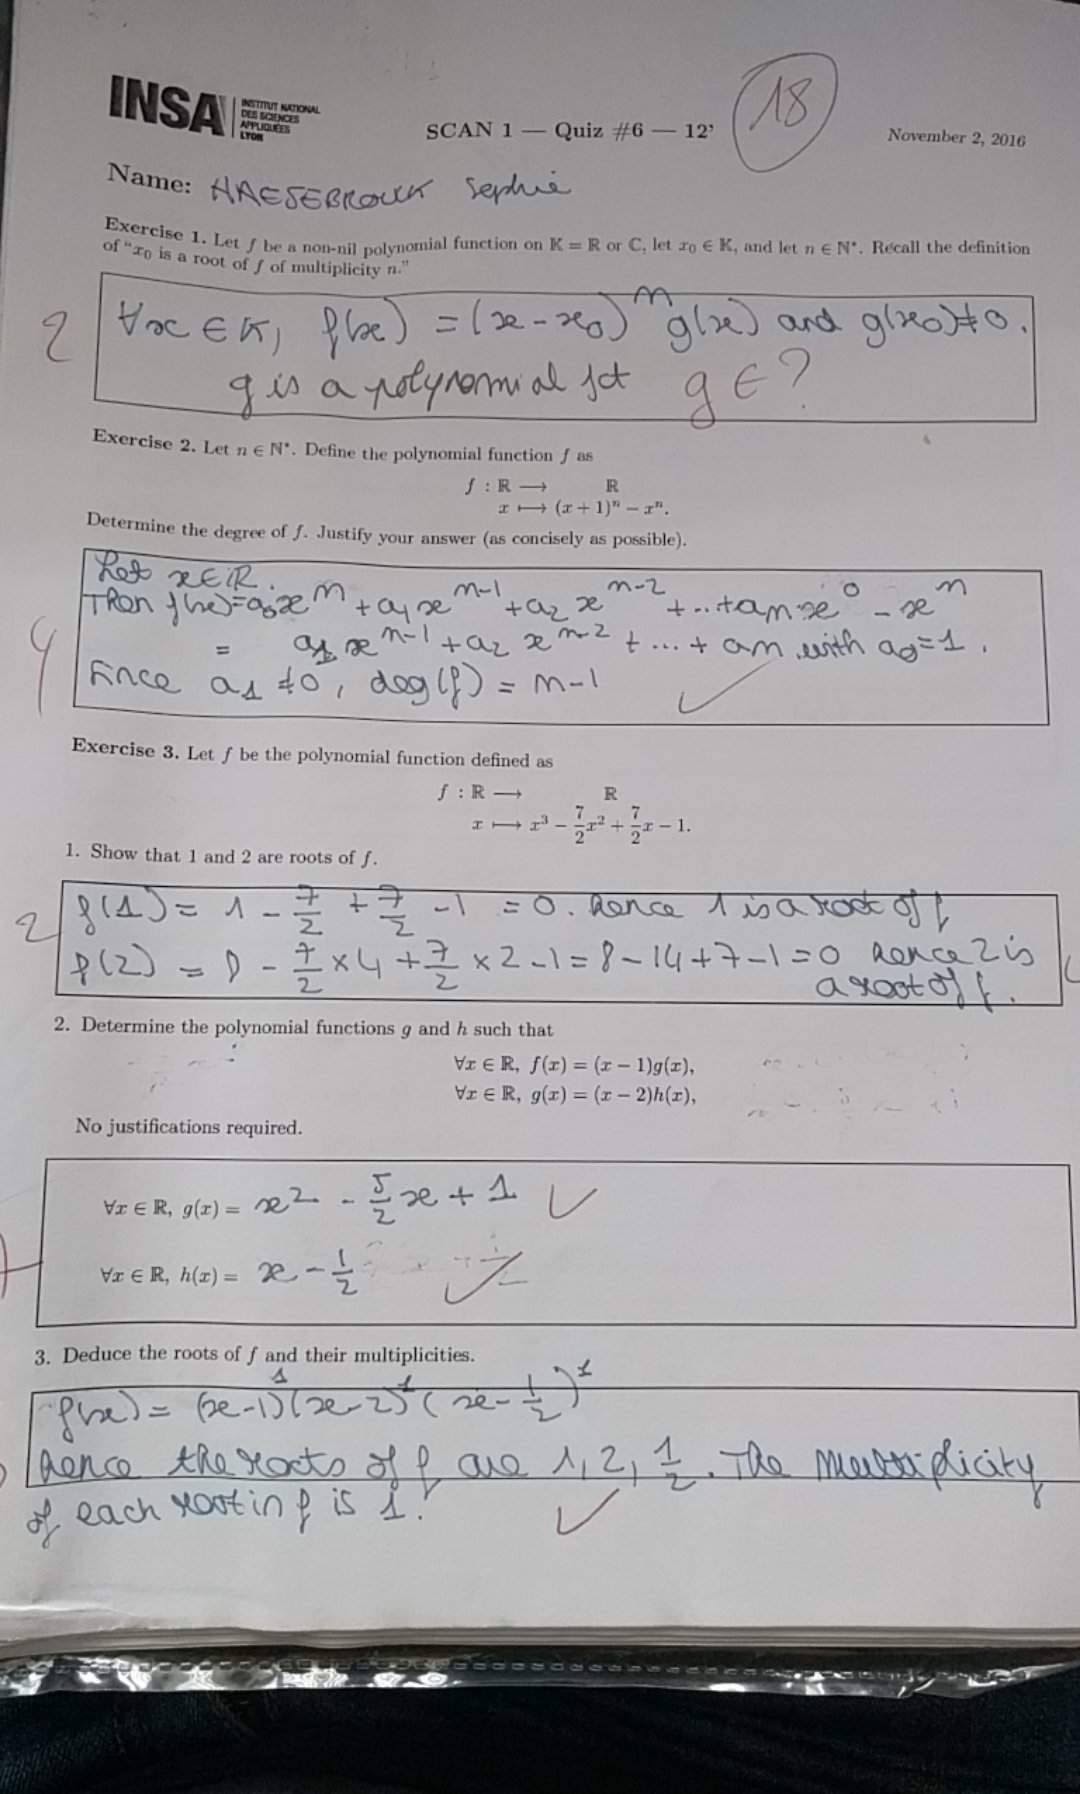 INSA
INSTITUT NATIONAL
DES SCIENCES
APPLIQUÉES
LYON
SCAN 1 — Quiz #6 — 12'
18
November 2, 2016
Name: HAESEBROUCK Sophie
Exercise 1. Let f be a non-nil polynomial function on K = R or C, let x₀ ∈ K, and let n ∈ N*. Recall the definition
of "x₀ is a root of f of multiplicity n."
2
∀x ∈ K, f(x) = (x - x₀)ⁿ g(x) and g(x₀) ≠ 0.
g is a polynomial fct g ∈ ?
Exercise 2. Let n ∈ N*. Define the polynomial function f as
f : R ⟶ R
x ⟼ (x + 1)ⁿ − xⁿ.
Determine the degree of f. Justify your answer (as concisely as possible).
Let x ∈ R.
Then f(x) = a₀xⁿ + a₁xⁿ⁻¹ + a₂xⁿ⁻² + ... + aₙx⁰ - xⁿ
= a₁xⁿ⁻¹ + a₂xⁿ⁻² + ... + aₙ with a₀ = 1.
4
Since a₁ ≠ 0, deg(f) = n-1
Exercise 3. Let f be the polynomial function defined as
f : R ⟶ R
x ⟼ x³ − 7/2 x² + 7/2 x − 1.
1. Show that 1 and 2 are roots of f.
2
f(1) = 1 - 7/2 + 7/2 - 1 = 0. hence 1 is a root of f
f(2) = 8 - 7/2 × 4 + 7/2 × 2 - 1 = 8 - 14 + 7 - 1 = 0 hence 2 is
a root of f.
2. Determine the polynomial functions g and h such that
∀x ∈ R, f(x) = (x − 1)g(x),
∀x ∈ R, g(x) = (x − 2)h(x),
No justifications required.
∀x ∈ R, g(x) = x² - 5/2 x + 1
∀x ∈ R, h(x) = x - 1/2
3. Deduce the roots of f and their multiplicities.
f(x) = (x-1)¹(x-2)¹(x-1/2)¹
hence the roots of f are 1, 2, 1/2. The multiplicity
of each root in f is 1.